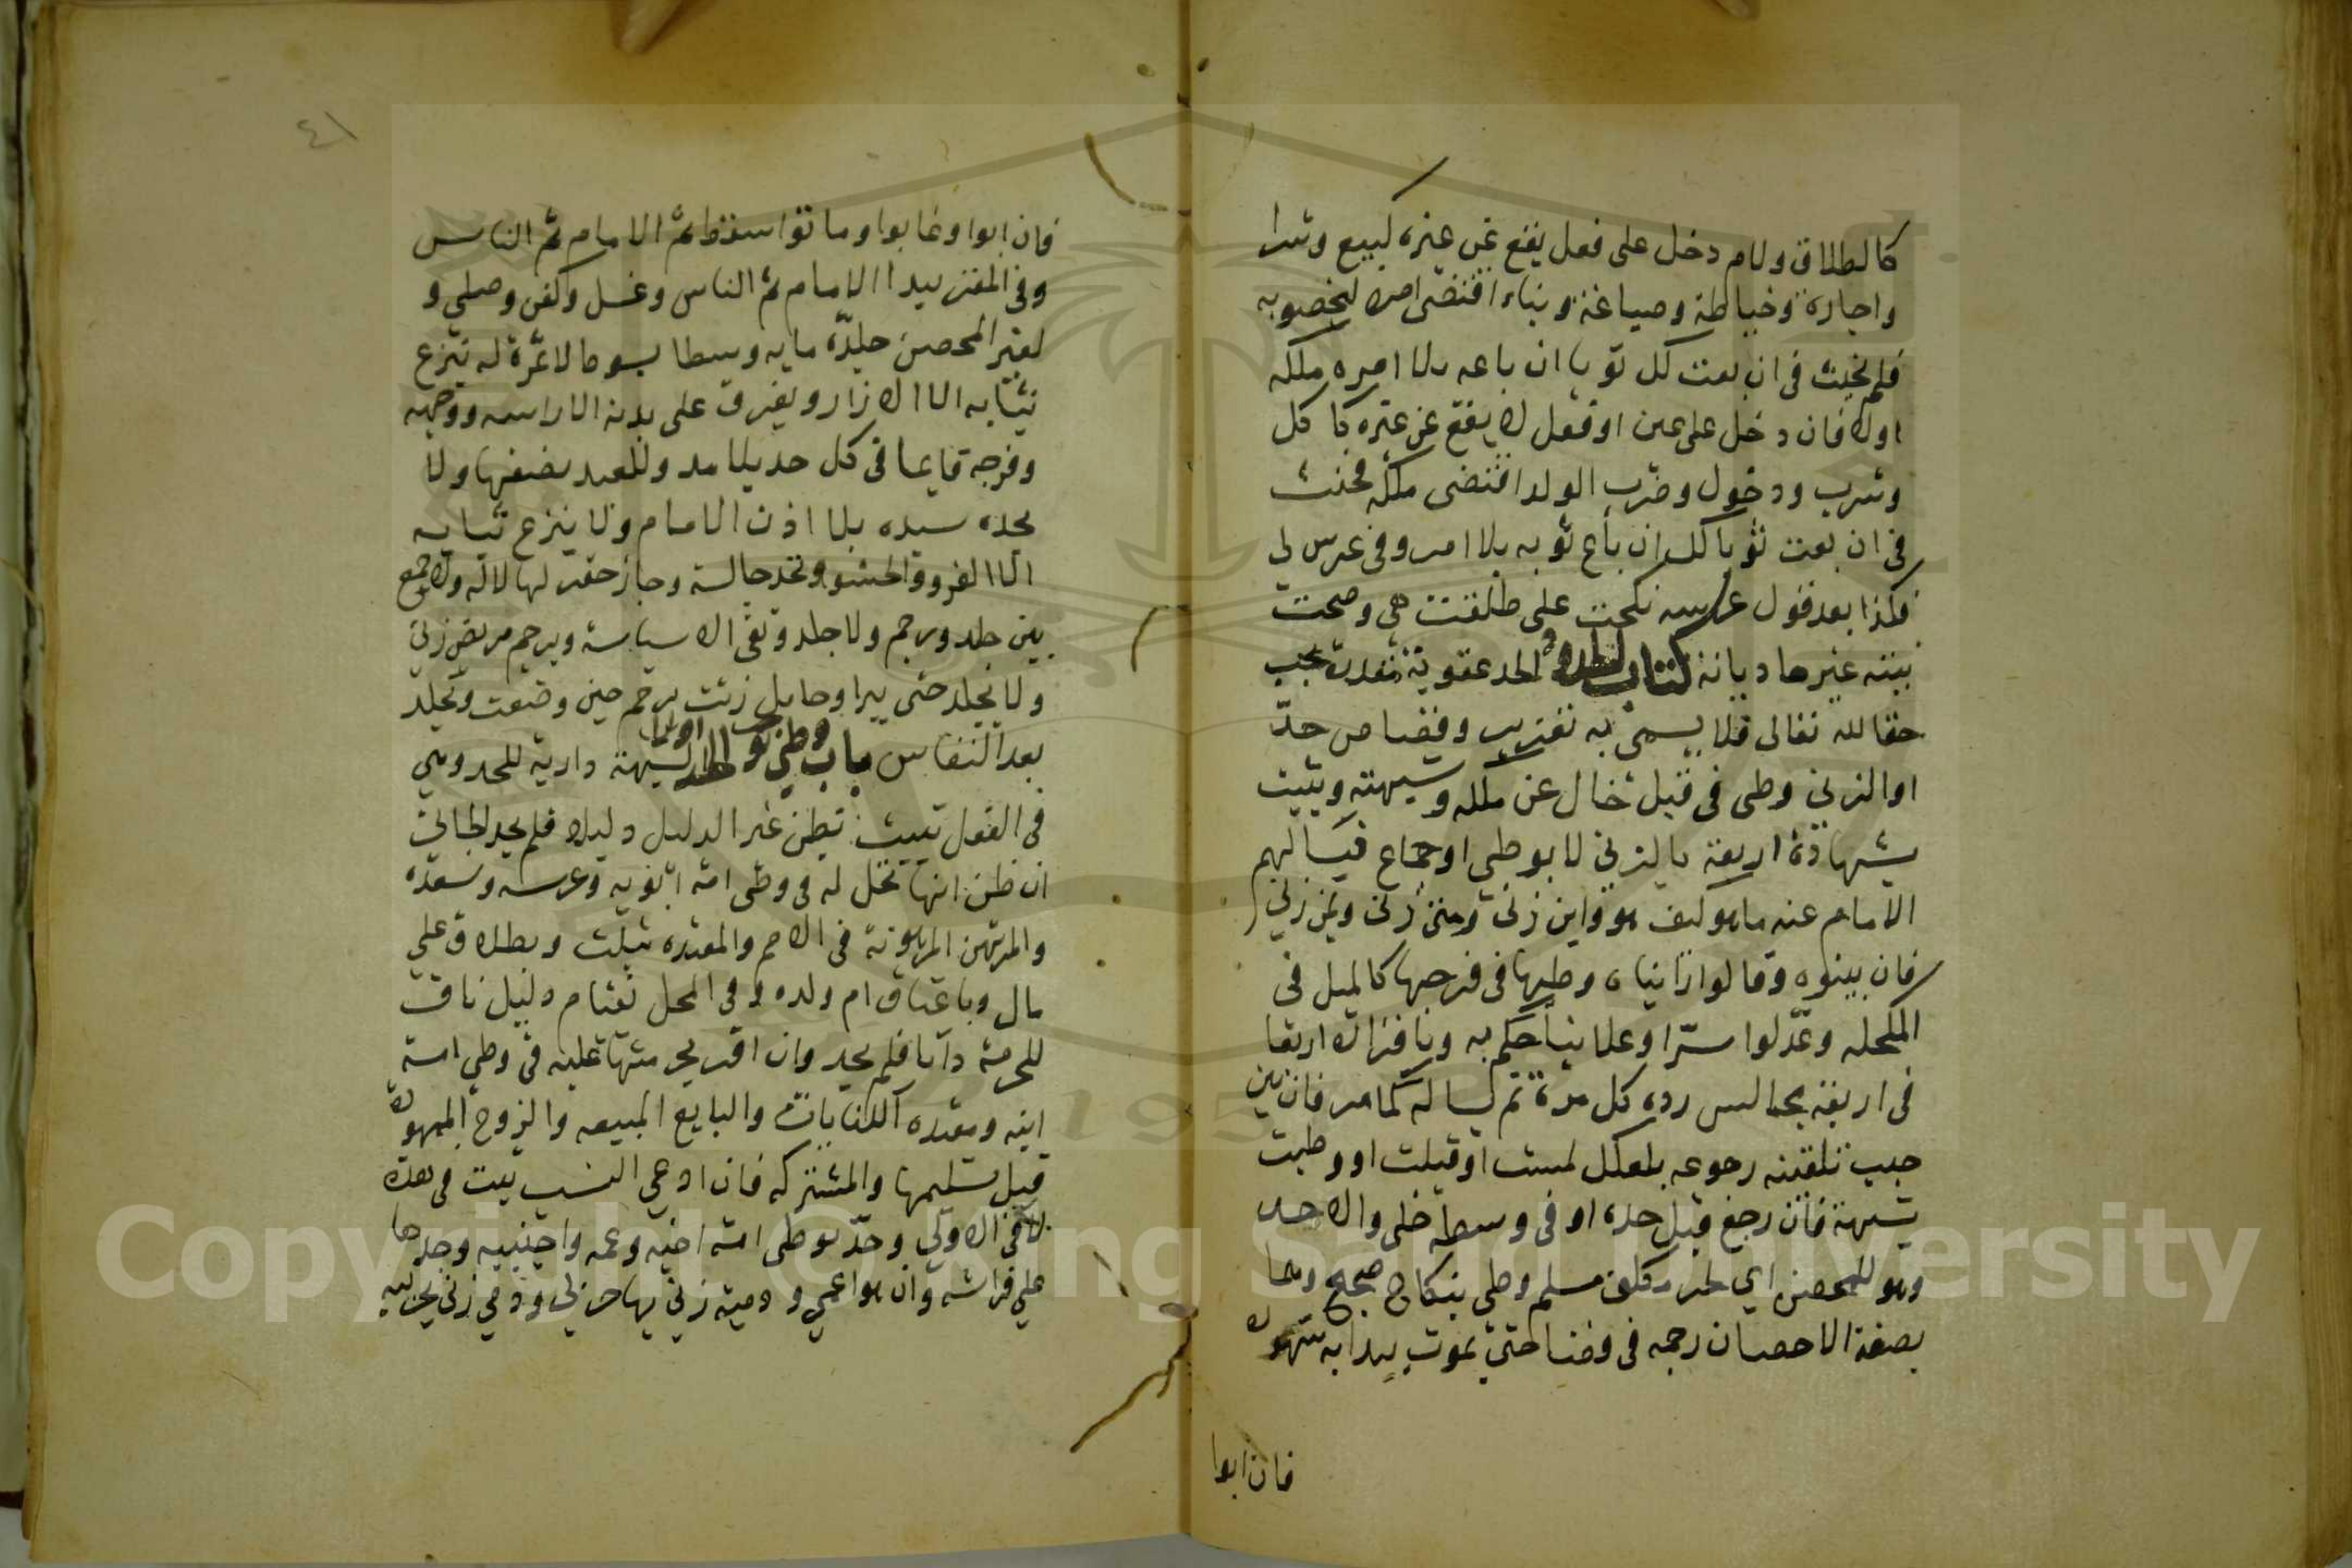 كالطلاق ولام دخل على فعل يقع عن غيره كبيع وشرا
واجارة وخياطة وصياغة وبناء اقتضى امره ليخصه به
فلم يحنث فى ان بعت لك ثوبا ان باعه بلا امره ملكه
اولا فان دخل على عين او فعل لا يقع عن غيره كاكل
وشرب ودخول وضرب الولد اقتضى ملكه فحنث
فى ان بعت ثوبا لك ان باع ثوبه بلا امر وفى عرس لى
فكذا بعد قول عرسه نكحت على طلقت هى وصحت
نيته غيرها ديانة كتاب الحدود الحد عقوبة مقدرة تجب
حقا لله تعالى فلا يسمى به تعزير وقصاص حدّ
او الزنى وطى فى قبل خال عن ملك وشبهته ويثبت
بشهادة اربعة بالزنى لا بوطى او جماع فيسالهم
الامام عنه ما هو كيف هو واين زنى ومتى زنى وبمن زنى
فان بينوه وقالوا راينا ه وطيها فى فرجها كالميل فى
المكحله وعدّلوا سرّا وعلانيا حكم به وباقراره اربعا
فى اربعة مجالس رده كل مرة ثم يساله كما مر فان بين
حبب تلقينه رجوعه بلعلك لمست او قبلت او وطيت
بشبهة فان رجع قبل حده او فى وسطه خلى والا حد
وهو للمحصن اي حر مكلف مسلم وطى بنكاح صحيح وهما
بصفة الاحصان رجمه فى فضا حتى يموت يبدا به شهوده
فان ابوا
٤١
فان ابوا او غابوا وماتوا سقط ثم الامام ثم الناس
وفى المقر يبدا الامام ثم الناس وغسل وكفن وصلي و
لغير المحصن جلدّه مايه وسطا بسوط لا ثمرة له تنزع
ثيابه الا الازار ويفرق على بدنه الا راسه ووجهه
وفرجه قايما فى كل حد بلا مد وللعبد نصفها ولا
يحده سيده بلا اذن الامام ولا ينزع ثيابه
الا الفرو والحشو وتحد جالسة وجاز حفر لها لا له ولا جمع
بين جلد ورجم ولا جلد ونفى الا سياسة ويرجم مريض زنى
ولا يجلد حتى يبرا وحامل زنت ترجم حين وضعت وتجلد
بعد النفاس باب وطى يوجب الحد اولا الشبهة دارية للحد وهى
فى الفعل تثبت بظن غير الدليل دليلا فلم يحد الجانى
ان ظن انها تحل له فى وطى امة ابويه وعرسه وسيده
والمرتهن المرهونة فى الاصح والمعتده بثلث وبطلاق على
مال وباعتاق ام ولده وفى المحل بقيام دليل ناف
للحرمة ذاتا فلم يحد وان اقر بحرمتها عليه فى وطى امة
ابنه ومعتده الكنايات والبايع المبيعه والزوج الممهوره
قبل تسليمها والمشتركه فان ادعي النسب يثبت فى هذه
لا فى الاولي وحدّ بوطى امة اخيه وعمه واجنبيه وجدها
علي فراشه وان هو اعمي وذمية زنى بها حربى وذمي زنى بحربيه